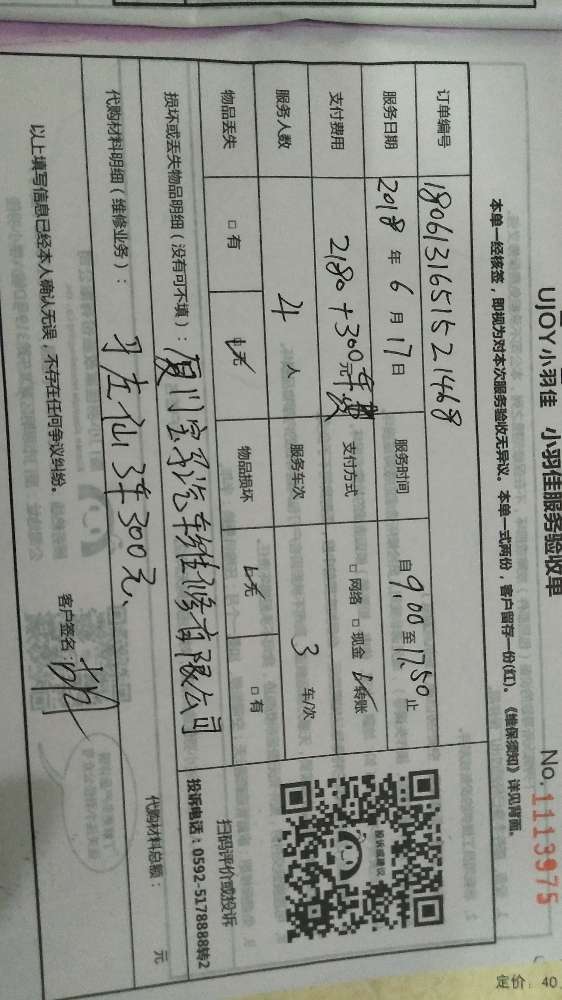 UJOY小羽佳 小羽佳服务验收单
No. 1113975
本单一经核签，即视为对本次服务验收无异议。本单一式两份，客户留存一份(红)。《维保须知》详见背面。
订单编号 1806131651521468
服务日期 2018年6月17日 服务时间 自9,00至17,50止
支付费用 2180+300元车费 支付方式 □网络 □现金 ☑转账
服务人数 4人 服务车次 3车/次
物品丢失 □有 ☑无 物品损坏 ☑无 □有
投诉建议
扫码评价或投诉
投诉电话：0592-5178888转2
损坏或丢失物品明细（没有可不填）：厦门宝马汽车维修有限公司
代购材料明细（维修业务）： 3车300元、
代购材料总额： 元
以上填写信息已经本人确认无误，不存在任何争议纠纷。 客户签名：
定价：40